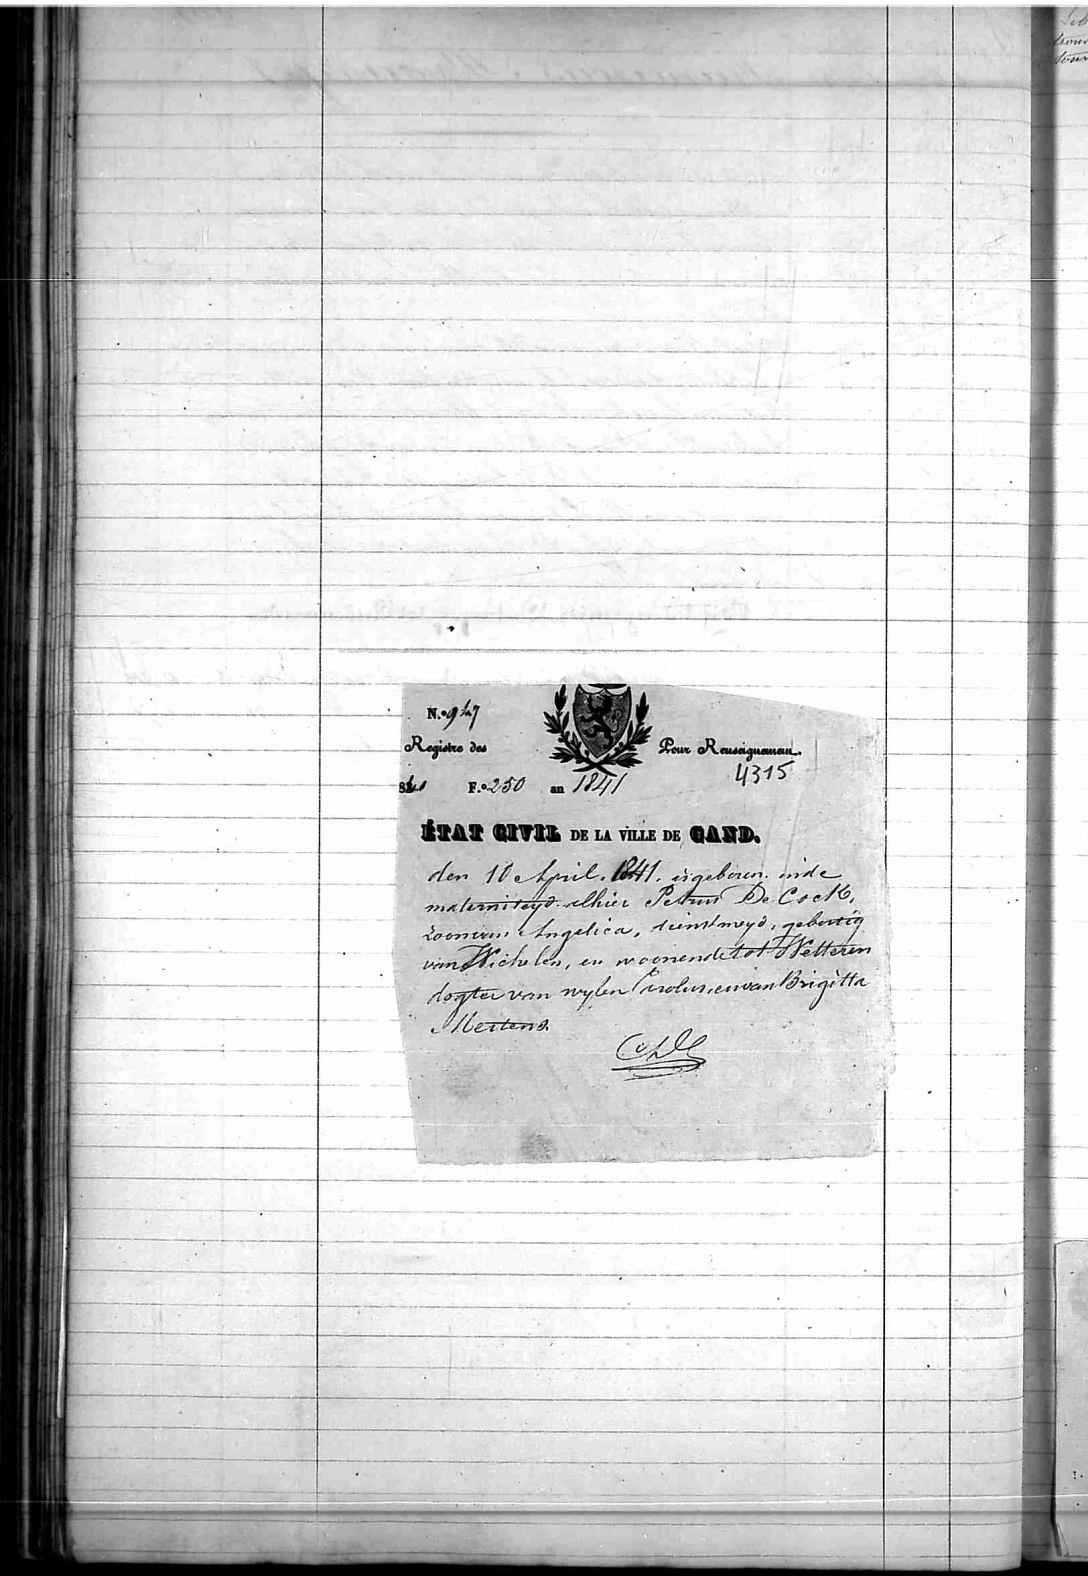 N.º 947
Registre des Pour Renseignemen.
4315
F.º 250 an 1841
ÉTAT CIVIL DE LA VILLE DE GAND.
den 10 April. 1841. is geboren. in de
materniteyd. alhier Petrus De Cock,
zoon van Angelica, dienstmeyd, geboortig
van Wichelen, en woonende tot Wetteren
dogter van wylen Carolus, en van Brigitta
Mertens.